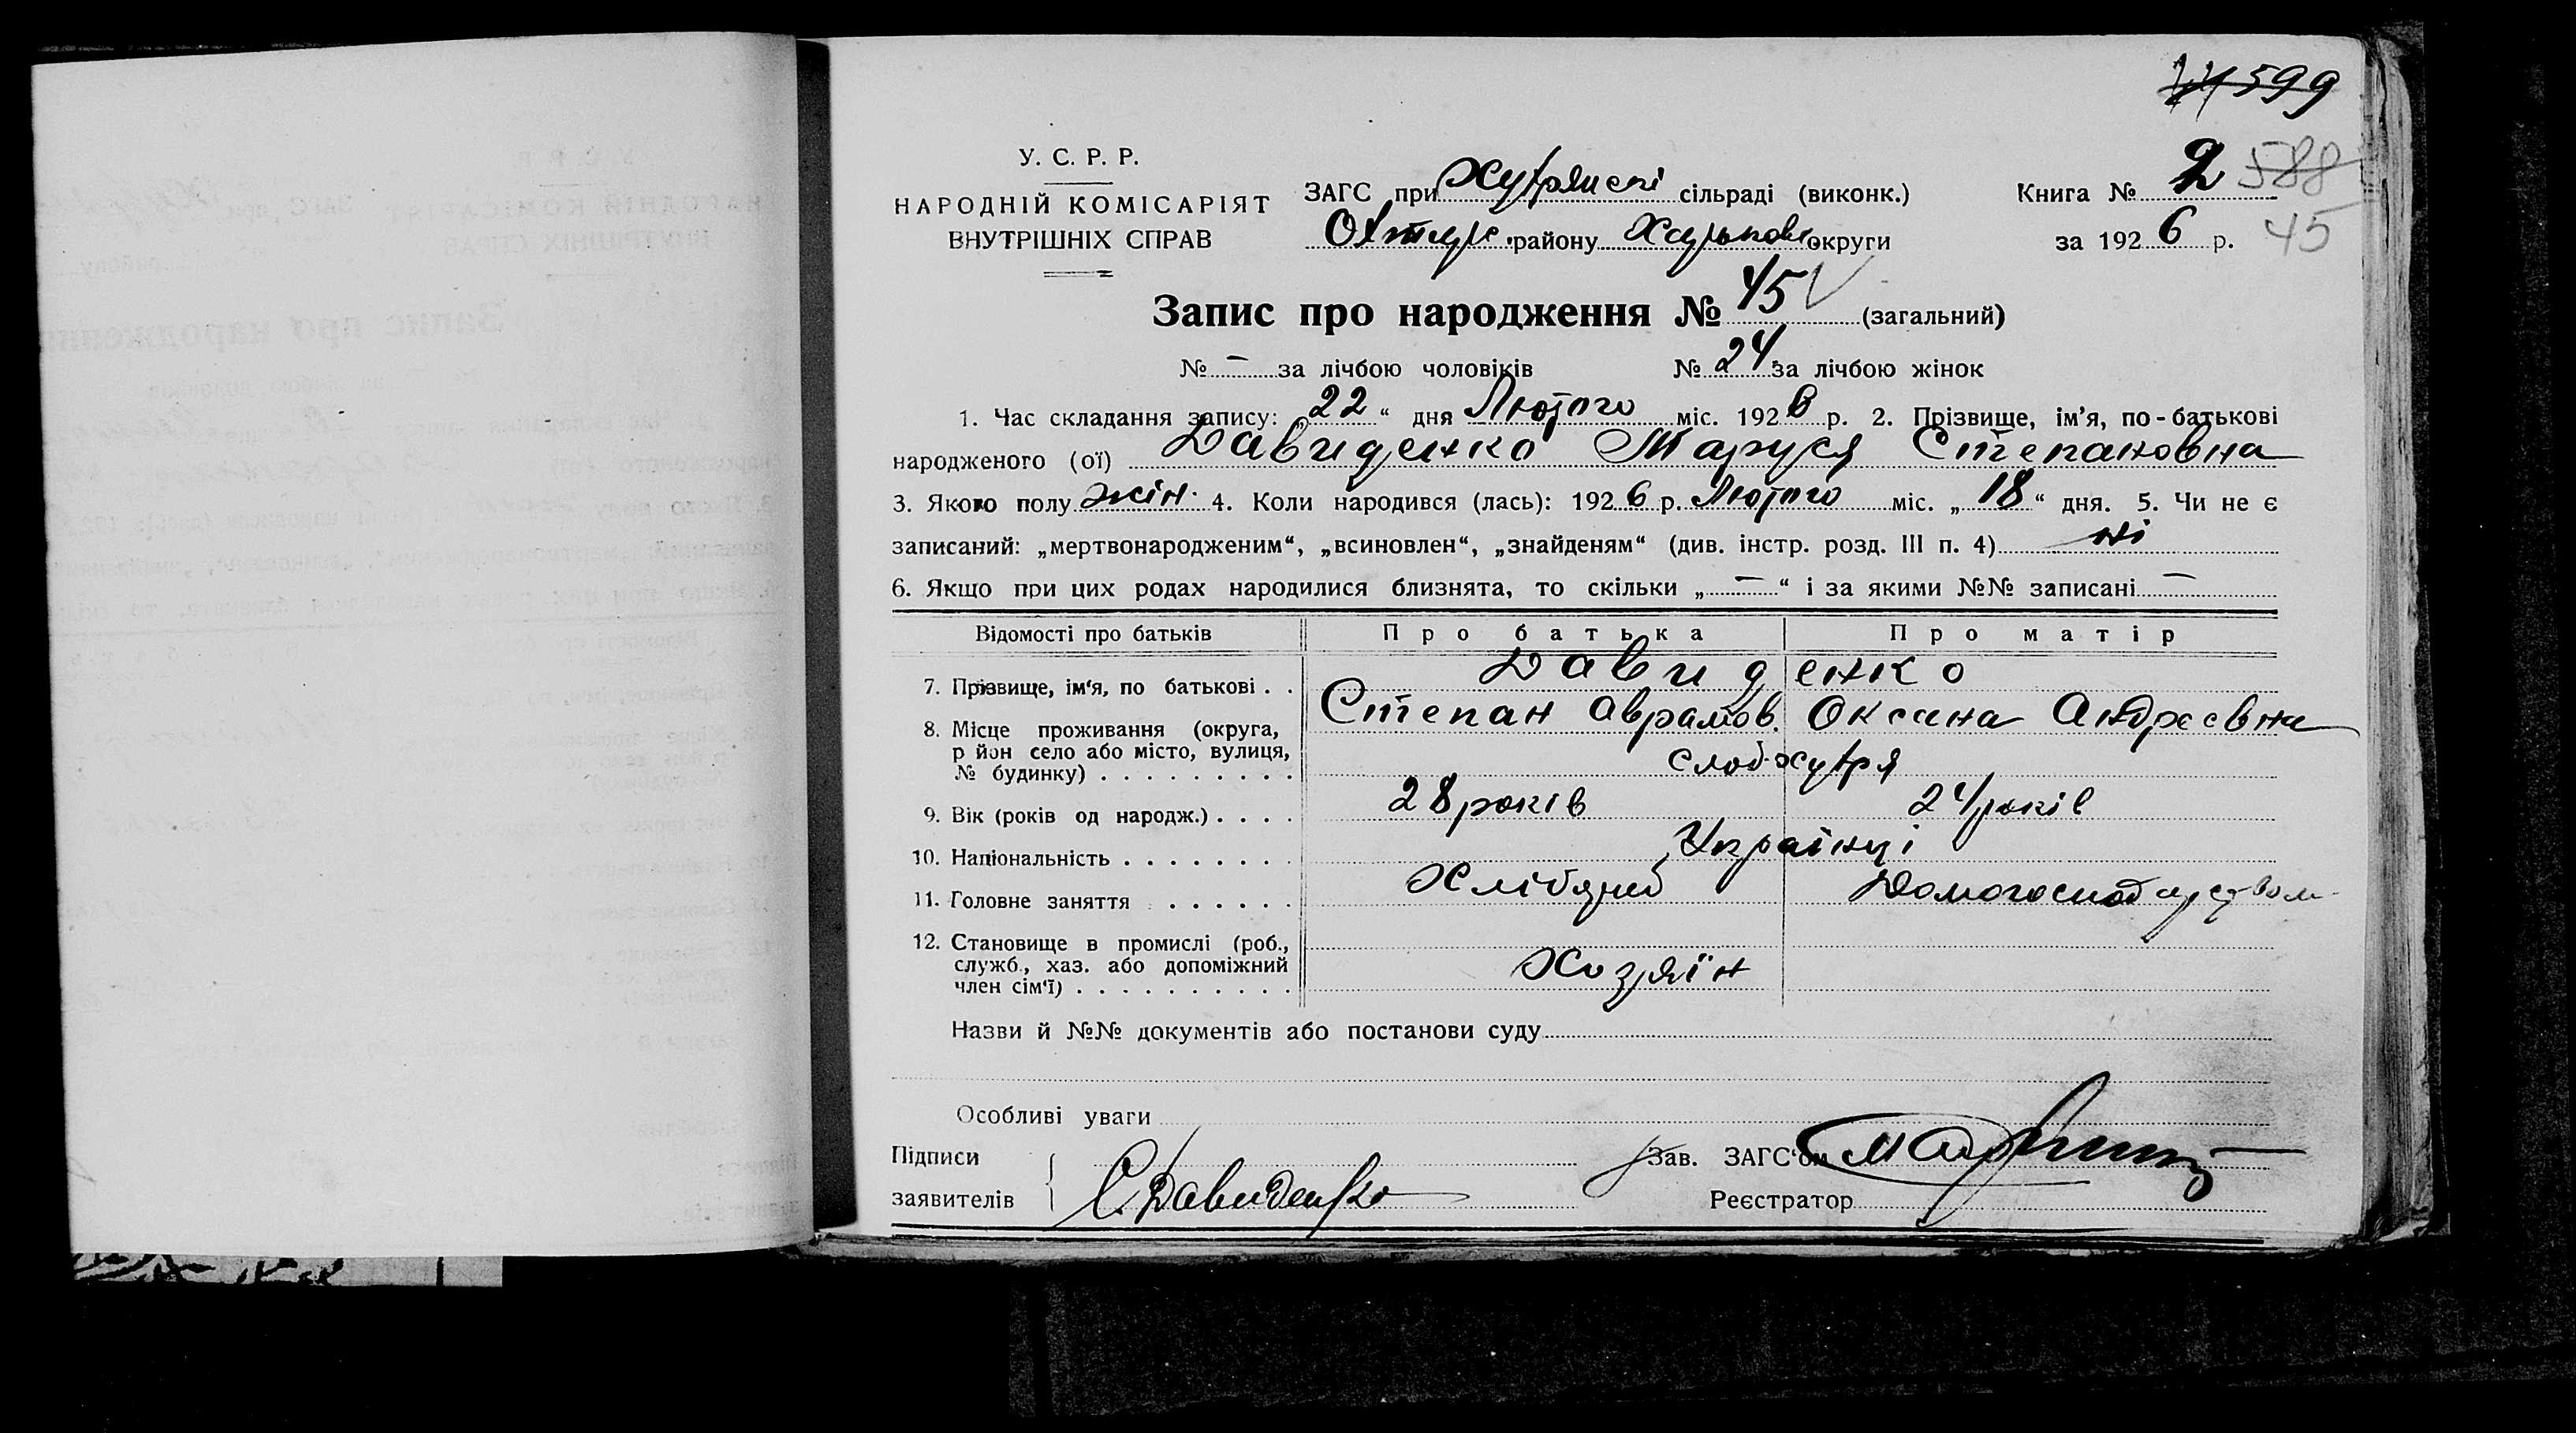 599
У. С. Р. Р.
НАРОДНІЙ КОМІСАРІЯТ
ВНУТРІШНІХ СПРАВ
ЗАГС при сільраді (виконк.)
району округи
Книга № 2 588
за 1926 р. 45
Запис про народження № 45 (загальний)
№ — за лічбою чоловіків № 24 за лічбою жінок
1. Час складання запису: „22“ дня Лютого міс. 1926 р. 2. Прізвище, ім’я, по-батькові
народженого (ої) Давиденко Маруся Степановна
3. Якого полу жін. 4. Коли народився (лась): 1926 р. Лютого міс. „18“ дня. 5. Чи не є
записаний: „мертвонародженим“, „всиновлен“, „знайденям“ (див. інстр. розд. III п. 4) ні
6. Якщо при цих родах народилися близнята, то скільки „—“ і за якими №№ записані —
Відомості про батьків Про батька Про матір
7. Прізвище, ім‘я, по батькові . . Давиденко
Степан Аврамов. Оксана Андреевна
8. Місце проживання (округа,
р йон село або місто, вулиця,
№ будинку) . . . . . . . . . Слоб.
9. Вік (років од народж.) . . . . 28 років 24 років
10. Національність . . . . . . . . Українці
11. Головне заняття . . . . . . Хлібороб
12. Становище в промислі (роб.,
служб., хаз. або допоміжний
член сім‘ї) . . . . . . . . . . Хозяїн
Назви й №№ документів або постанови суду
Особливі уваги
Підписи
заявителів С. Давиденко
Зав. ЗАГС‘ом
Реєстратор